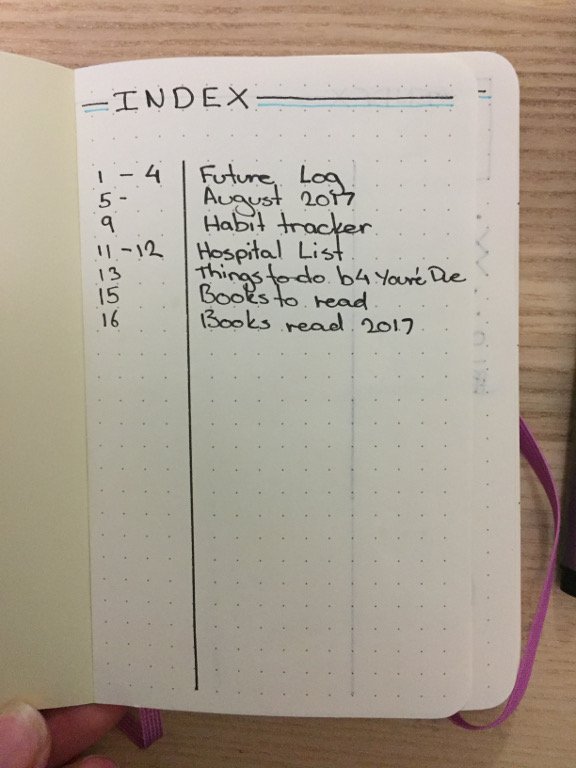 INDEX
1 - 4 Future Log
5 - August 2017
9 Habit tracker
11 - 12 Hospital List
13 Things to-do b4 You're Due
15 Books to read
16 Books read 2017